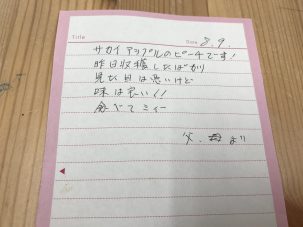 Title
Date 8.9.
サカイアップルのピーチです!
昨日収穫したばかり
見た目は悪いけど
味は良い!!
食べてミィー
父、母より